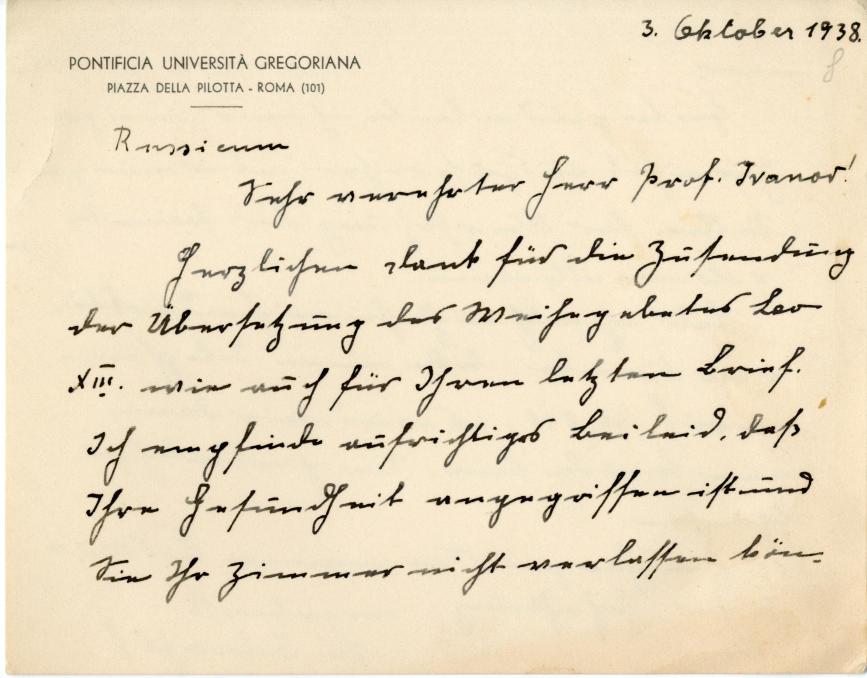 3. Oktober 1938.
8
PONTIFICIA UNIVERSITÀ GREGORIANA
PIAZZA DELLA PILOTTA - ROMA (101)
Russicum
Sehr verehrter Herr Prof. Ivanov!
Herzlichen Dank für die Zusendung
der Übersetzung des Weihegebetes Leo
XIII. wie auch für Ihren letzten Brief.
Ich empfinde aufrichtiges Beileid, daß
Ihre Gesundheit angegriffen ist und
Sie Ihr Zimmer nicht verlassen kön-